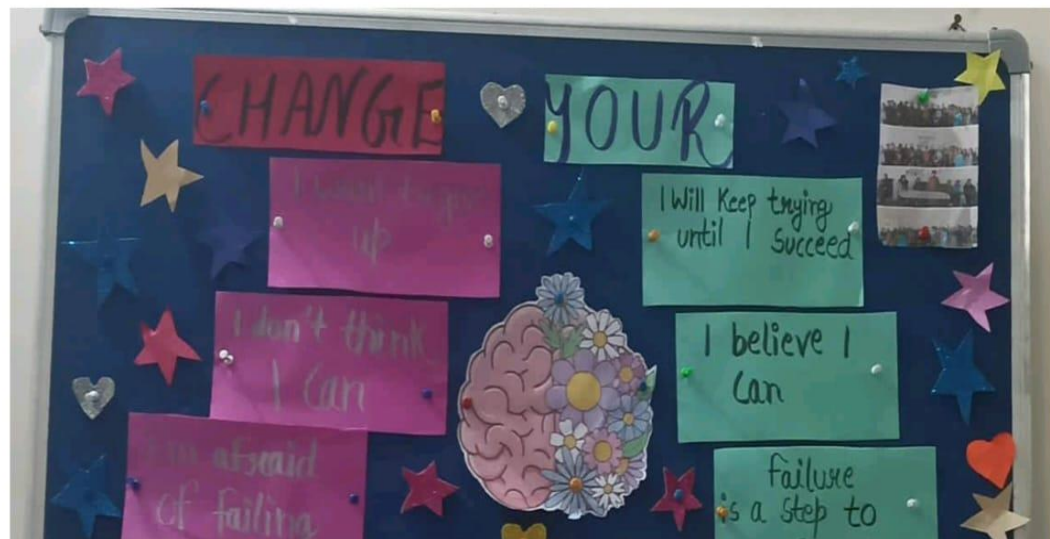 CHANGE YOUR
I want to give
up
I don't think
I Can
I'm afraid
of failing
I Will Keep trying
until I succeed
I believe I
Can
Failure
is a step to